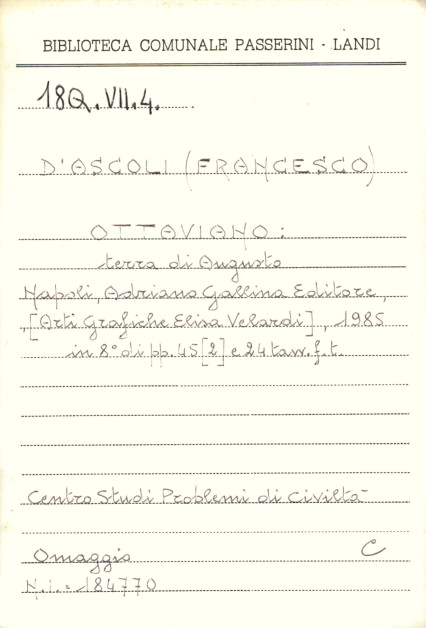 BIBLIOTECA COMUNALE PASSERINI - LANDI
18Q. VII. 4.
D'ASCOLI (FRANCESCO)
OTTAVIANO :
terra di Augusto
Napoli, Adriano Gallina Editore,
[Arti Grafiche Elisa Velardi], 1985
in 8° di pp. 45 [2] e 24 taw. f. t.
Centro Studi Problemi di Civiltà
Omaggio C
N.I. = 184770